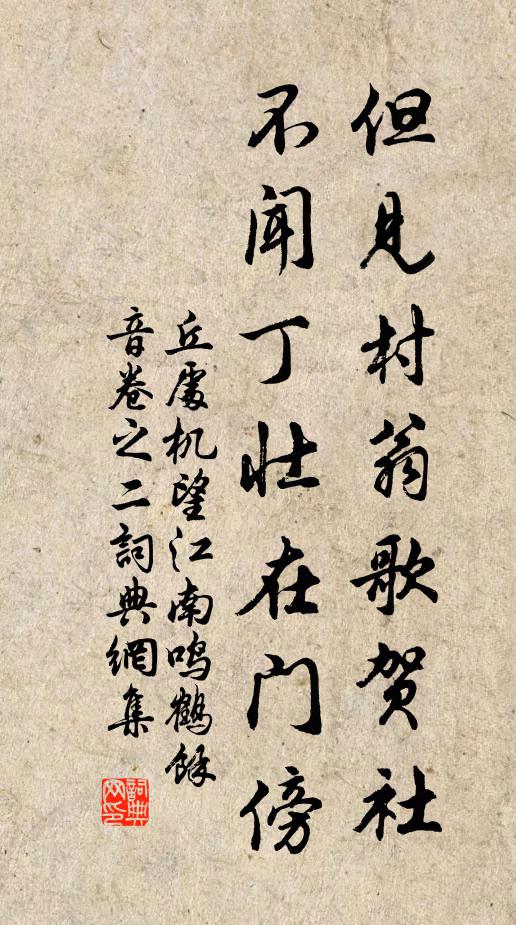 但见村翁歌贺社
不闻丁壮在门傍
丘處机望江南鸣鶴餘
音卷之二詞典網集
詞典网印